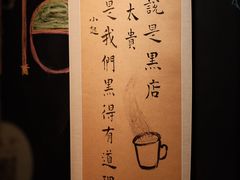 說是黑店
太貴
是我們黑得有道理
小逸